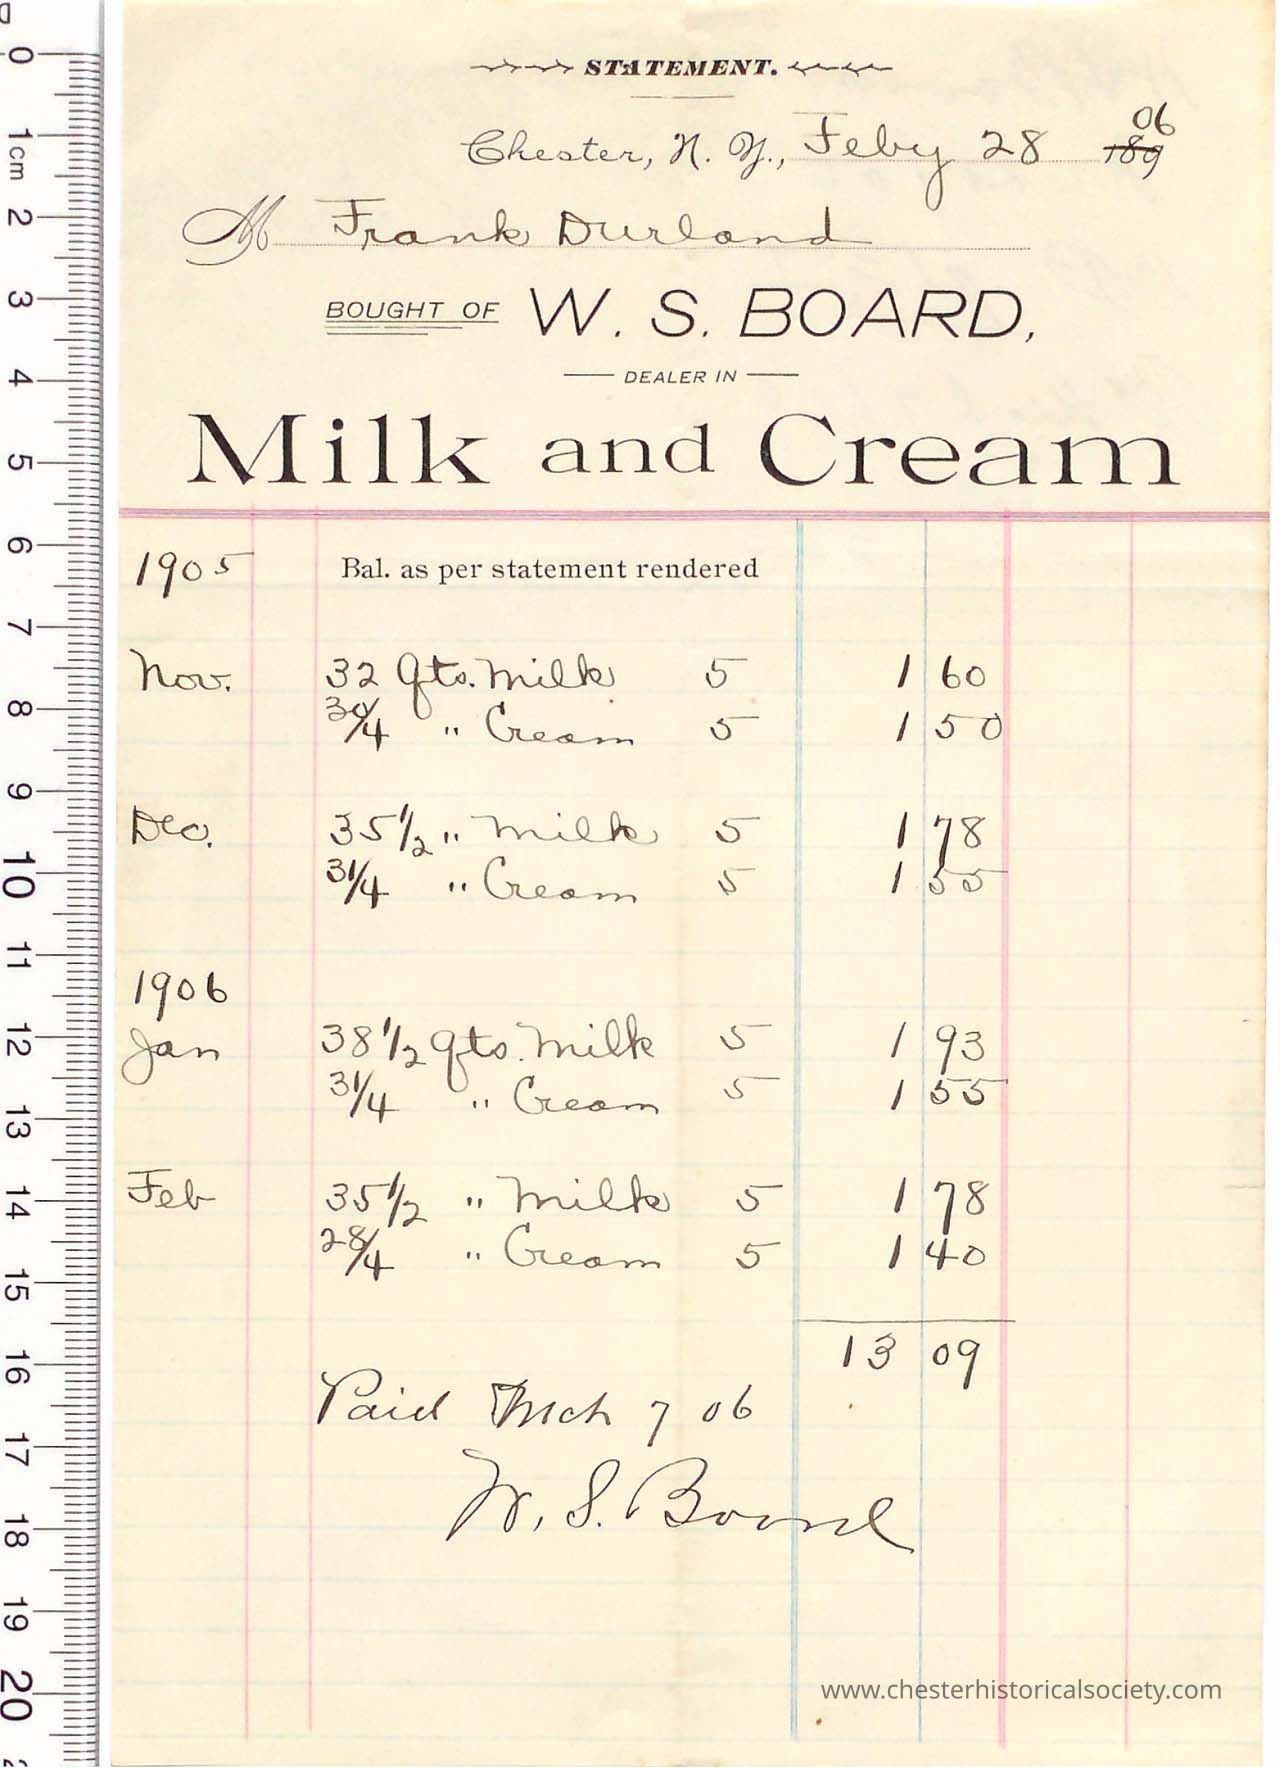 STATEMENT.
Chester, N. Y., Feby 28 189 06
M Frank Durland
BOUGHT OF W. S. BOARD,
DEALER IN
Milk and Cream
1905 Bal. as per statement rendered
Nov. 32 qts. Milk 5 1 60
30/4 " Cream 5 1 50
Dec. 35 1/2 " Milk 5 1 78
31/4 " Cream 5 1 55
1906
Jan 38 1/2 qts. Milk 5 1 93
31/4 " Cream 5 1 55
Feb 35 1/2 " Milk 5 1 78
28/4 " Cream 5 1 40
13 09
Paid Mch 7 06
W. S. Board
www.chesterhistoricalsociety.com
0
1 cm
2
3
4
5
6
7
8
9
10
11
12
13
14
15
16
17
18
19
20